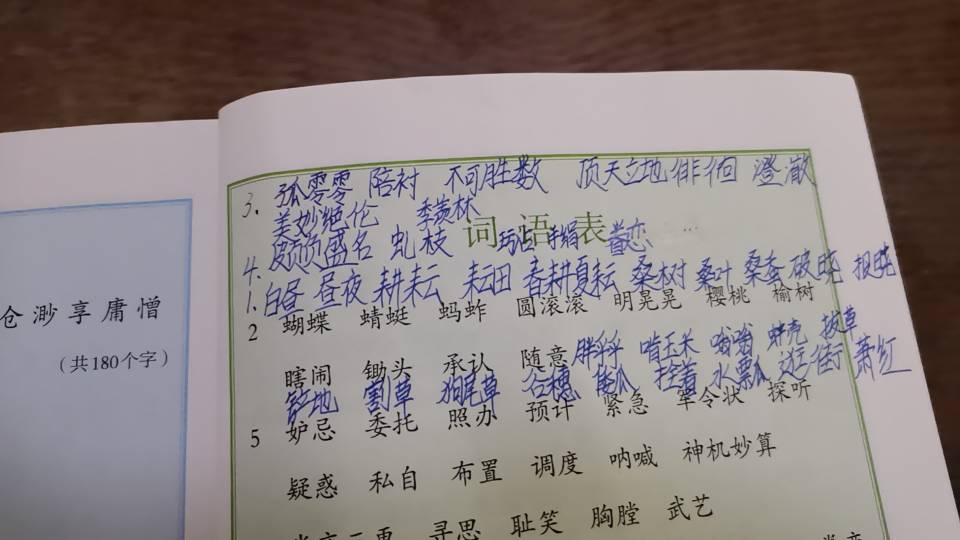 仓 渺 享 庸 憎
（共180个字）
3. 孤零零 陪衬 不可胜数 顶天立地 徘徊 澄澈
美妙绝伦 季羡林
词 语 表
4. 颇负盛名 虬枝 玷 手绢 眷恋
1. 白昼 昼夜 耕耘 耘田 春耕夏耘 桑树 桑叶 桑蚕 破晓 报晓
2 蝴蝶 蜻蜓 蚂蚱 圆滚滚 明晃晃 樱桃 榆树
瞎闹 锄头 承认 随意 胖乎乎 啃玉米 嗡嗡 蚌壳 拔草
铲地 割草 狗尾草 谷穗 拴着 水瓢 逛街 萧红
5 妒忌 委托 照办 预计 紧急 军令状 探听
疑惑 私自 布置 调度 呐喊 神机妙算
寻思 耻笑 胸膛 武艺